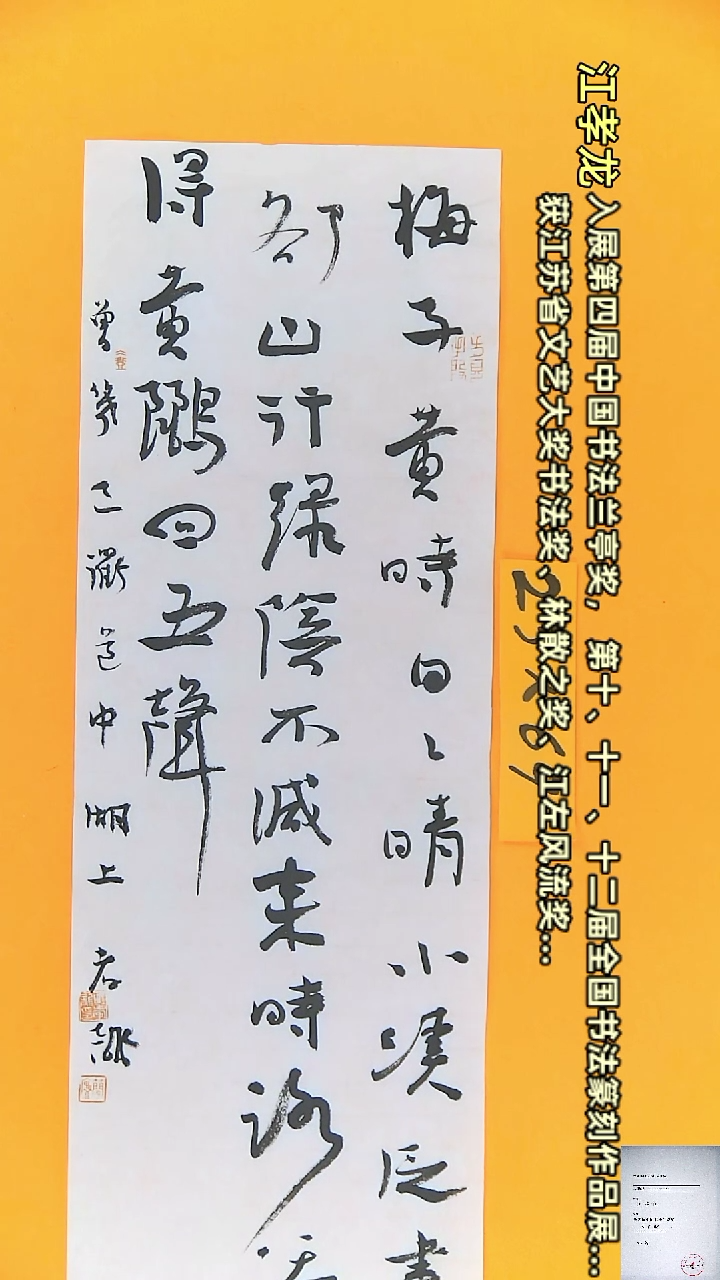 江孝龙 入展第四届中国书法兰亭奖，第十、十一、十二届全国书法篆刻作品展...
获江苏省文艺大奖书法奖、林散之奖、江左风流奖...
梅子黄時日〻晴小溪泛盡
却山行緑陰不減来時路添
得黄鸝四五聲
曾幾三衢道中 湖上 孝龍